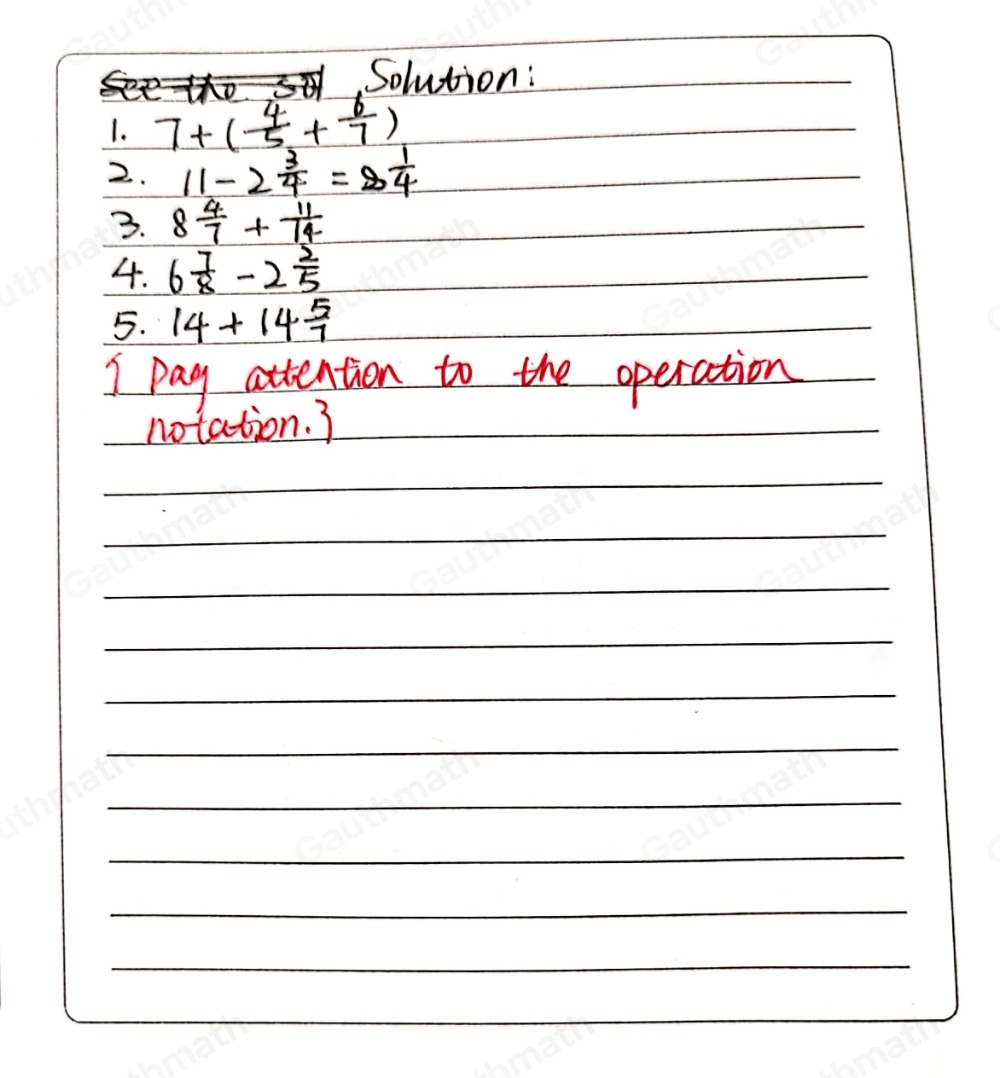 See the sol Solution:
1. 7+(4/5 + 6/7)
2. 11-2 3/4 = 8 1/4
3. 8 4/7 + 11/14
4. 6 7/8 - 2 2/5
5. 14+14 5/7
{ Pay attention to the operation
notation.}